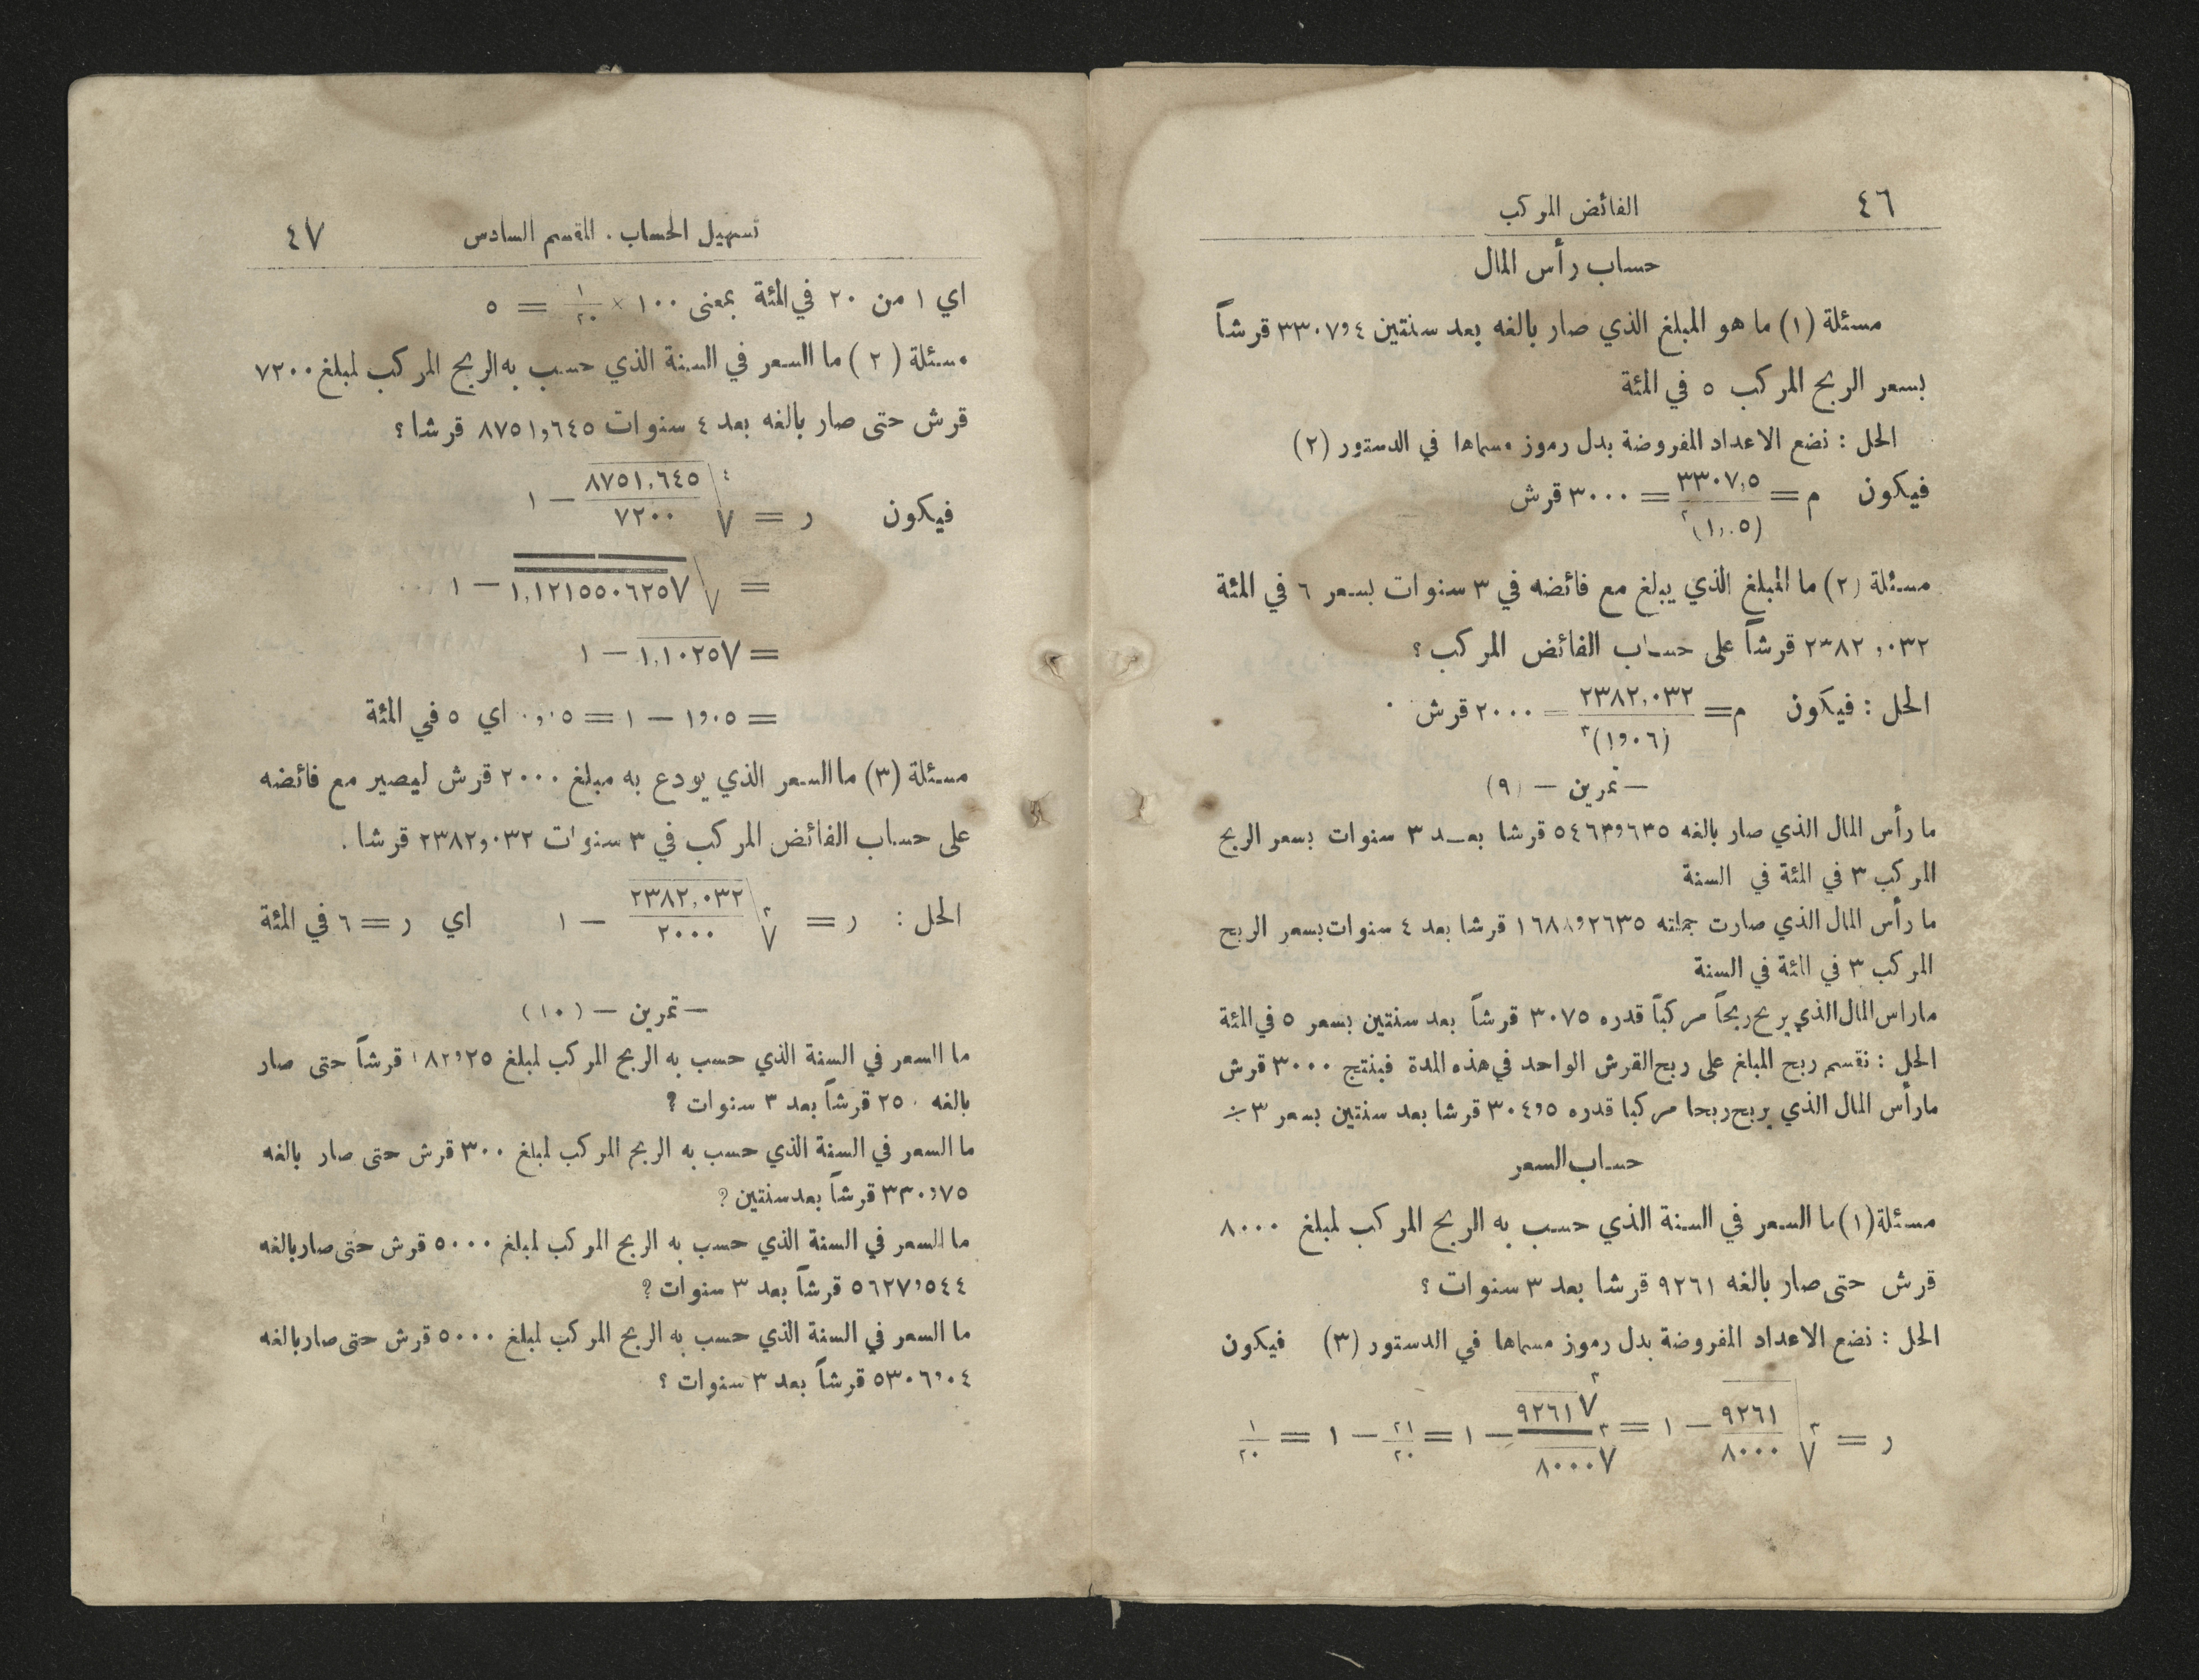 ٤٦
الفائض المركب
حساب رأس المال
مسئلة (١) ما هو المبلغ الذي صار بالغه بعد سنتين ٣٣٠٧,٤ قرشاً
بسعر الربح المركب ٥ في المئة
الحل : نضع الاعداد المفروضة بدل رموز مسماها في الدستور (٢)
فيكون م = ٣٣٠٧,٥ / (١,٠٥)٢ = ٣٠٠٠ قرش
مسئلة (٢) ما المبلغ الذي يبلغ مع فائضه في ٣ سنوات بسعر ٦ في المئة
٢٣٨٢,٠٣٢ قرشاً على حساب الفائض المركب ؟
الحل : فيكون م = ٢٣٨٢,٠٣٢ / (١,٠٦)٣ = ٢٠٠٠ قرش
— تمرين — (٩)
ما رأس المال الذي صار بالغه ٥٤٦٣,٦٣٥ قرشا بعد ٣ سنوات بسعر الربح
المركب ٣ في المئة في السنة
ما رأس المال الذي صارت جملته ١٦٨٨,٢٦٣٥ قرشا بعد ٤ سنوات بسعر الربح
المركب ٣ في المئة في السنة
ماراس المال الذي يربح ربحاً مركباً قدره ٣٠٧٥ قرشاً بعد سنتين بسعر ٥ في المئة
الحل : نقسم ربح المبلغ على ربح القرش الواحد في هذه المدة فينتج ٣٠٠٠ قرش
مارأس المال الذي يربح ربحا مركبا قدره ٣٠٤,٥ قرشا بعد سنتين بسعر ٣ ٪
حساب السعر
مسئلة (١) ما السعر في السنة الذي حسب به الربح المركب لمبلغ ٨٠٠٠
قرش حتى صار بالغه ٩٢٦١ قرشا بعد ٣ سنوات ؟
الحل : نضع الاعداد المفروضة بدل رموز مسماها في الدستور (٣) فيكون
ر = ٣√(٩٢٦١ / ٨٠٠٠) — ١ = ٣√٩٢٦١ / ٣√٨٠٠٠ — ١ = ٢١/٢٠ — ١ = ١/٢٠
تسهيل الحساب . القسم السادس
٤٧
اي ١ من ٢٠ في المئة بمعنى ١٠٠ × ١/٢٠ = ٥
مسئلة (٢) ما السعر في السنة الذي حسب به الربح المركب لمبلغ ٧٢٠٠
قرش حتى صار بالغه بعد ٤ سنوات ٨٧٥١,٦٤٥ قرشا ؟
فيكون ر = ٤√(٨٧٥١,٦٤٥ / ٧٢٠٠) — ١
= √√١,١٢١٥٥٠٦٢٥ — ١
= √١,١٠٢٥ — ١
= ١,٠٥ — ١ = ٠,٠٥ اي ٥ في المئة
مسئلة (٣) ما السعر الذي يودع به مبلغ ٢٠٠٠ قرش ليصير مع فائضه
على حساب الفائض المركب في ٣ سنوات ٢٣٨٢,٠٣٢ قرشا .
الحل : ر = ٣√(٢٣٨٢,٠٣٢ / ٢٠٠٠) — ١ اي ر = ٦ في المئة
— تمرين — (١٠)
ما السعر في السنة الذي حسب به الربح المركب لمبلغ ١٨٢,٢٥ قرشاً حتى صار
بالغه ٢٥٠ قرشاً بعد ٣ سنوات ؟
ما السعر في السنة الذي حسب به الربح المركب لمبلغ ٣٠٠ قرش حتى صار بالغه
٣٣٠,٧٥ قرشاً بعد سنتين ؟
ما السعر في السنة الذي حسب به الربح المركب لمبلغ ٥٠٠٠ قرش حتى صار بالغه
٥٦٢٧,٥٤٤ قرشاً بعد ٣ سنوات ؟
ما السعر في السنة الذي حسب به الربح المركب لمبلغ ٥٠٠٠ قرش حتى صار بالغه
٥٣٠٦,٠٤ قرشاً بعد ٣ سنوات ؟